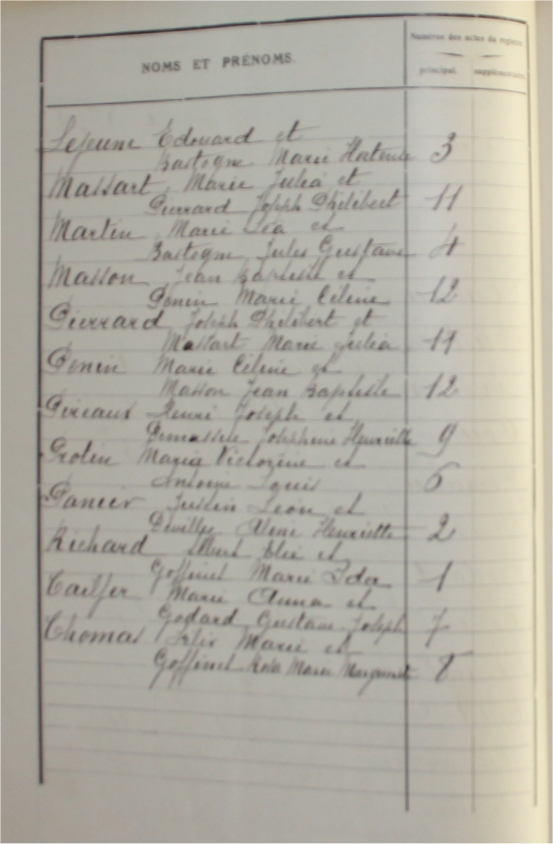 NOMS ET PRÉNOMS.
Numéros des actes du registre
principal. supplémentaire
Lejeune Edouard et
Bastogne Marie Hortense 3
Massart Marie Julia et
Pierrard Joseph Philibert 11
Martin Marie Ida et
Bastogne Jules Gustave 4
Masson Jean Baptiste et
Penin Marie Céline 12
Pierrard Joseph Philibert et
Massart Marie Julia 11
Penin Marie Céline et
Masson Jean Baptiste 12
Piréaux Henri Joseph et
Joséphine Henriette 9
Marie Victorine et
Antoine Louis 6
Pancir Justin Léon et
Devillez Henriette 2
Richard Albert Elie et
Goffinet Marie Ida 1
Tailfer Marie Anna et
Godard Gustave Joseph 7
Thomas Félix Marie et
Goffinet Rosa Marie Marguerite 8